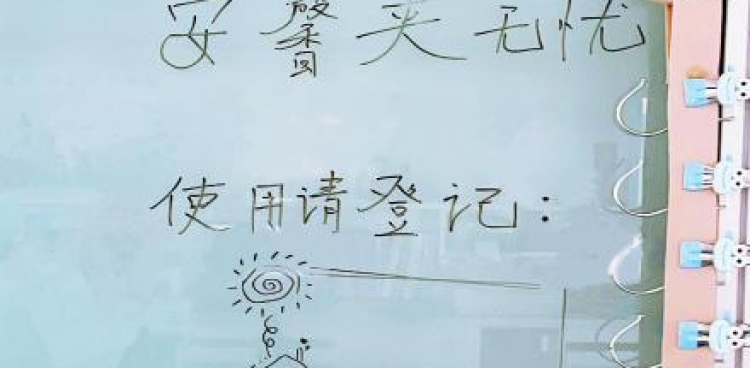 安馨夹无忧
使用请登记: